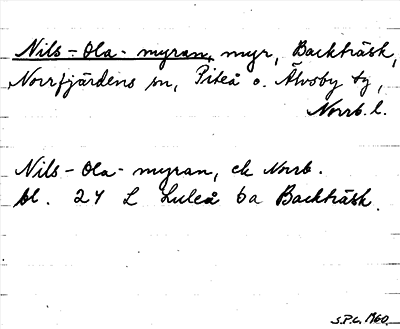 Nils-Ola-myran, myr, Backträsk,
Norrfjärdens sn, Piteå o. Älvsby tg,
Norrb. l.
Nils-Ola-myran, ek Norrb.
bl. 24 L Luleå 6a Backträsk.
S.P.L. 1960.